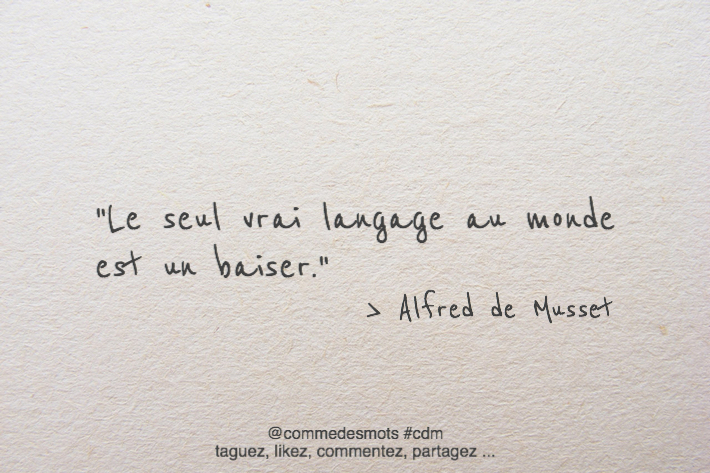 "Le seul vrai langage au monde
est un baiser."
> Alfred de Musset
@commedesmots #cdm
taguez, likez, commentez, partagez ...